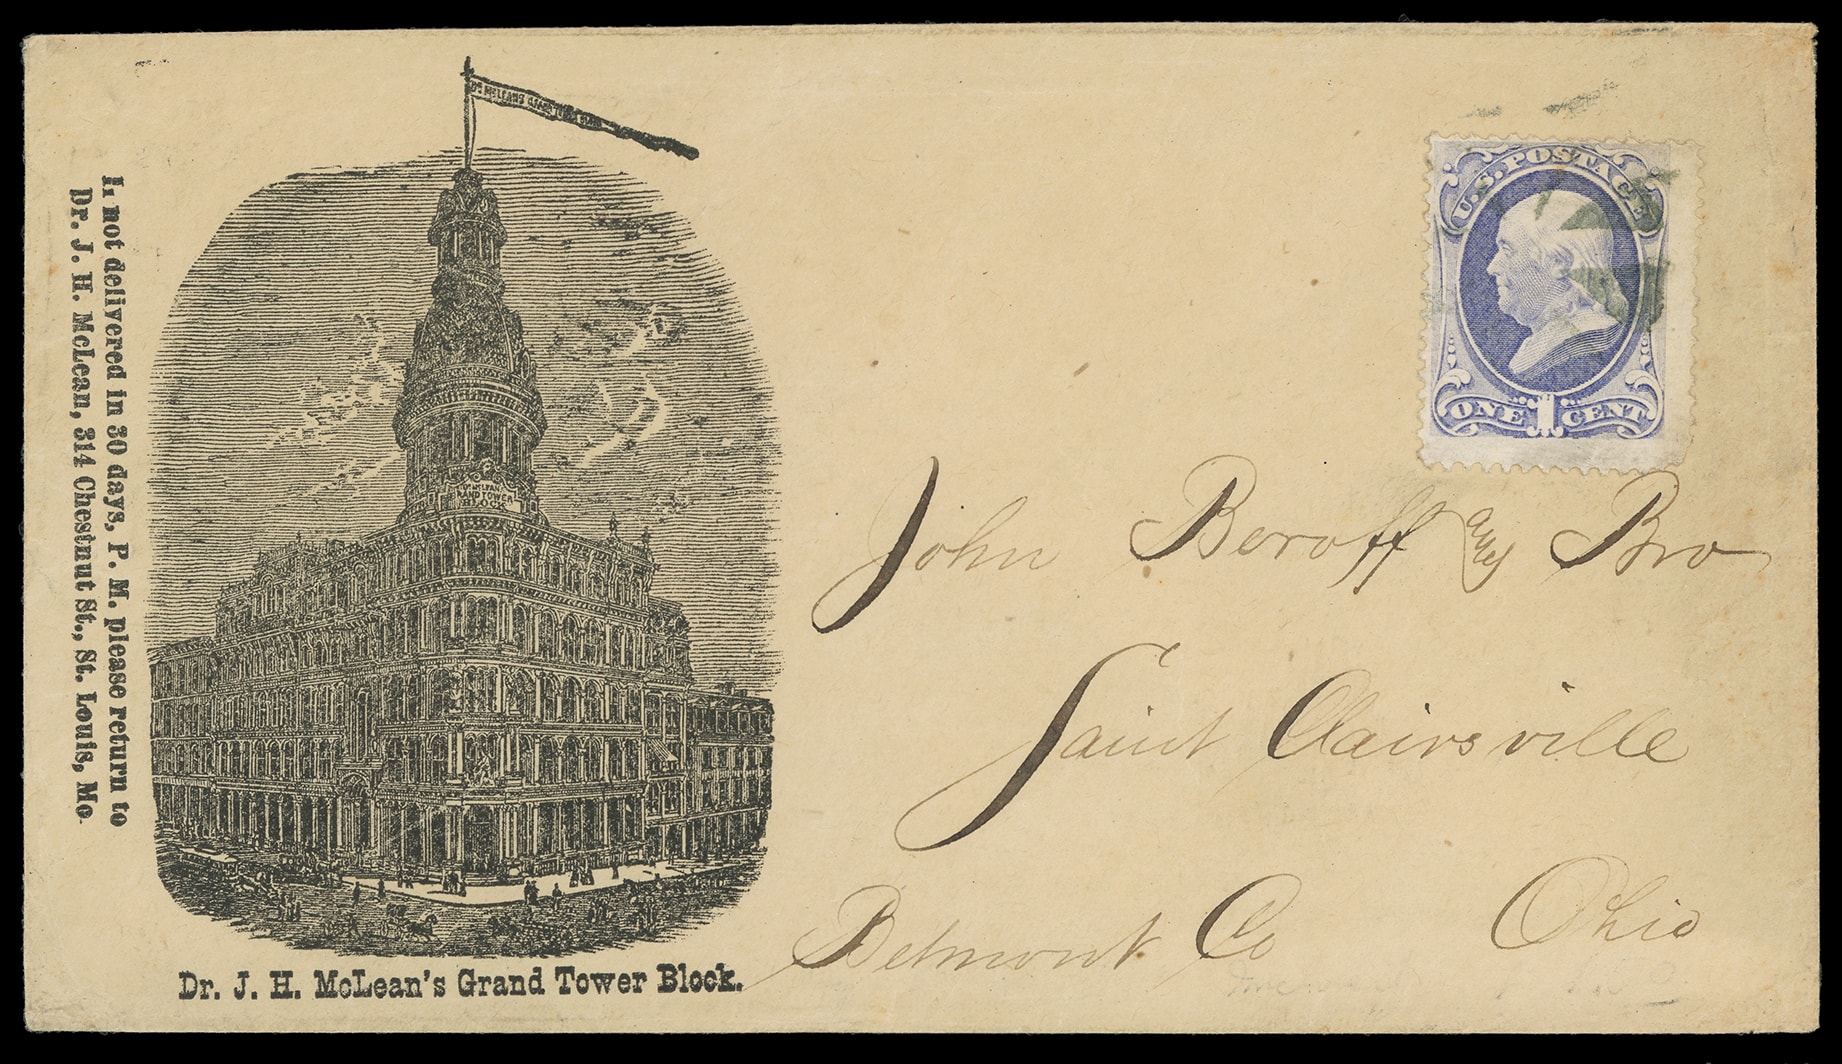 I, not delivered in 30 days, P. M. please return to
Dr. J. H. McLean, 314 Chestnut St., St. Louis, Mo.
Dr. McLEAN'S
GRAND TOWER
BLOCK
Dr. J. H. McLean's Grand Tower Block.
U.S. POSTAGE
ONE 1 CENT.
John Boroff Bro
Saint Clairsville
Belmont Co Ohio